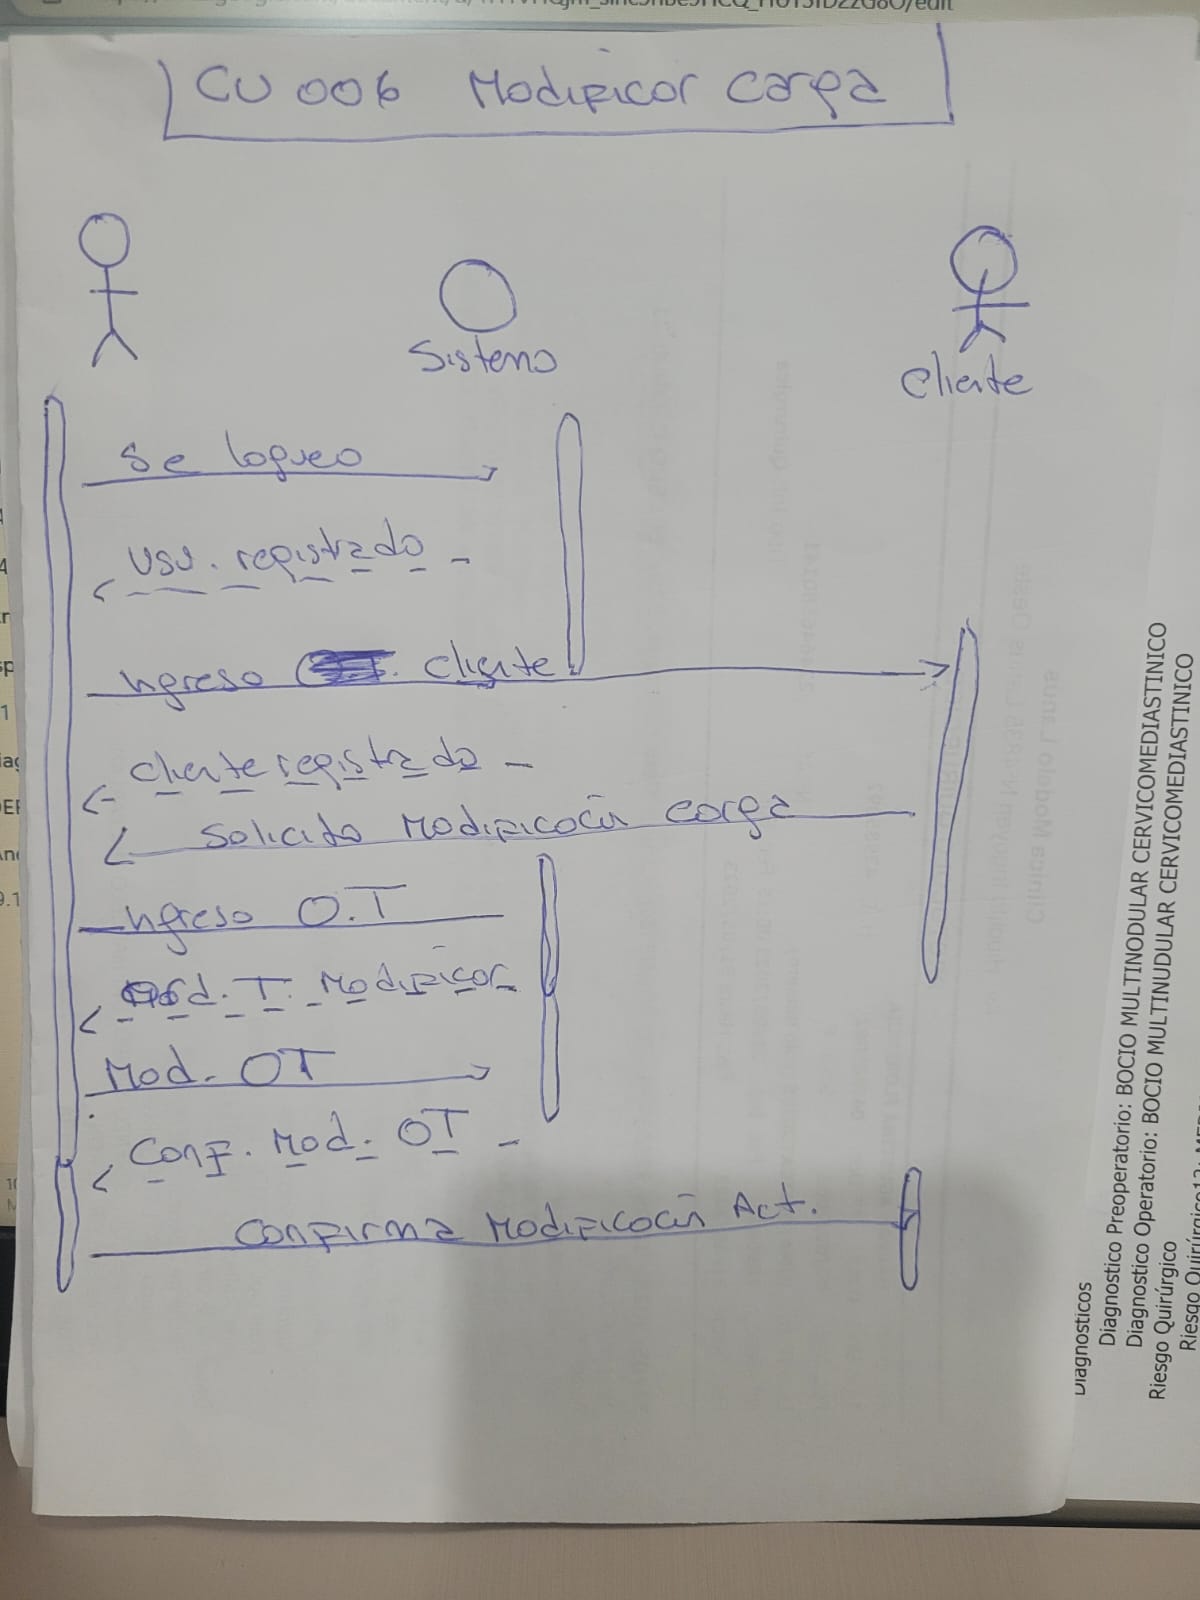 CU 006 Modificar carga
Sistema
Cliente
Se logueo
Usu. registrado
Ingreso cliente
Cliente registrado
Solicito Modificación carga
Ingreso O.T
Ord. T. Modificar
Mod. OT
Conf. Mod. OT
Confirma Modificación Act.
Diagnosticos
Diagnostico Preoperatorio: BOCIO MULTINODULAR CERVICOMEDIASTINICO
Diagnostico Operatorio: BOCIO MULTINUDULAR CERVICOMEDIASTINICO
Riesgo Quirúrgico